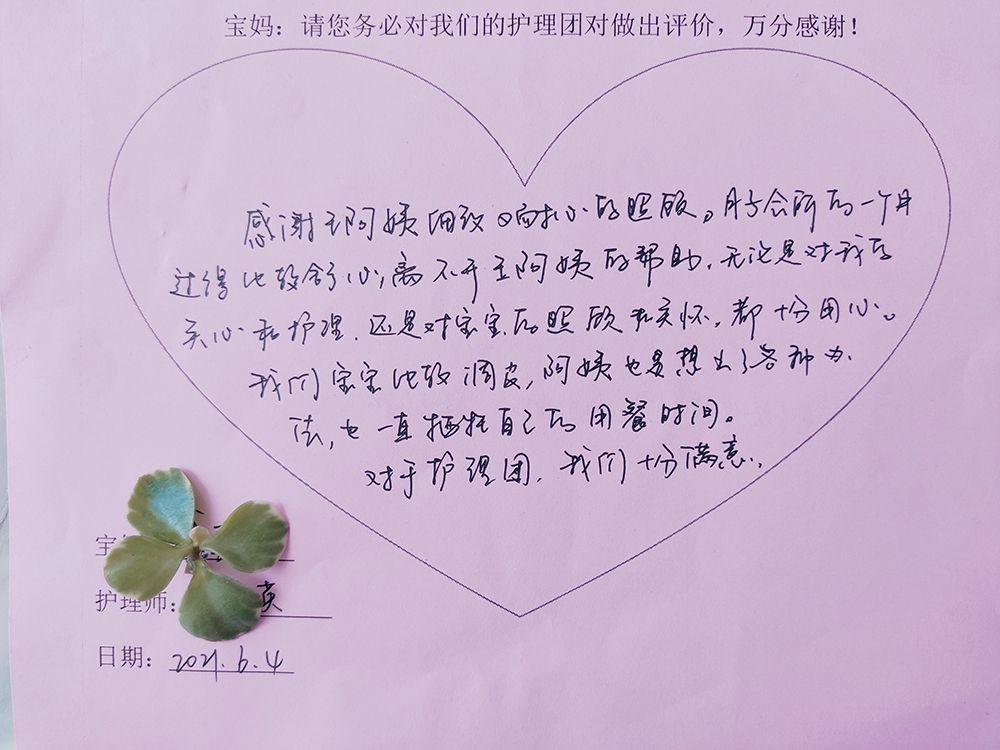 宝妈：请您务必对我们的护理团对做出评价，万分感谢！
感谢王阿姨细致及耐心的照顾。月子会所的一个月
过得比较舒心，离不开王阿姨的帮助，无论是对我的
关心和护理，还是对宝宝的照顾和关怀，都十分用心。
我们宝宝比较调皮，阿姨也是想出了各种办
法，也一直牺牲自己的用餐时间。
对于护理团，我们十分满意。
宝
护理师：英
日期：2021.6.4